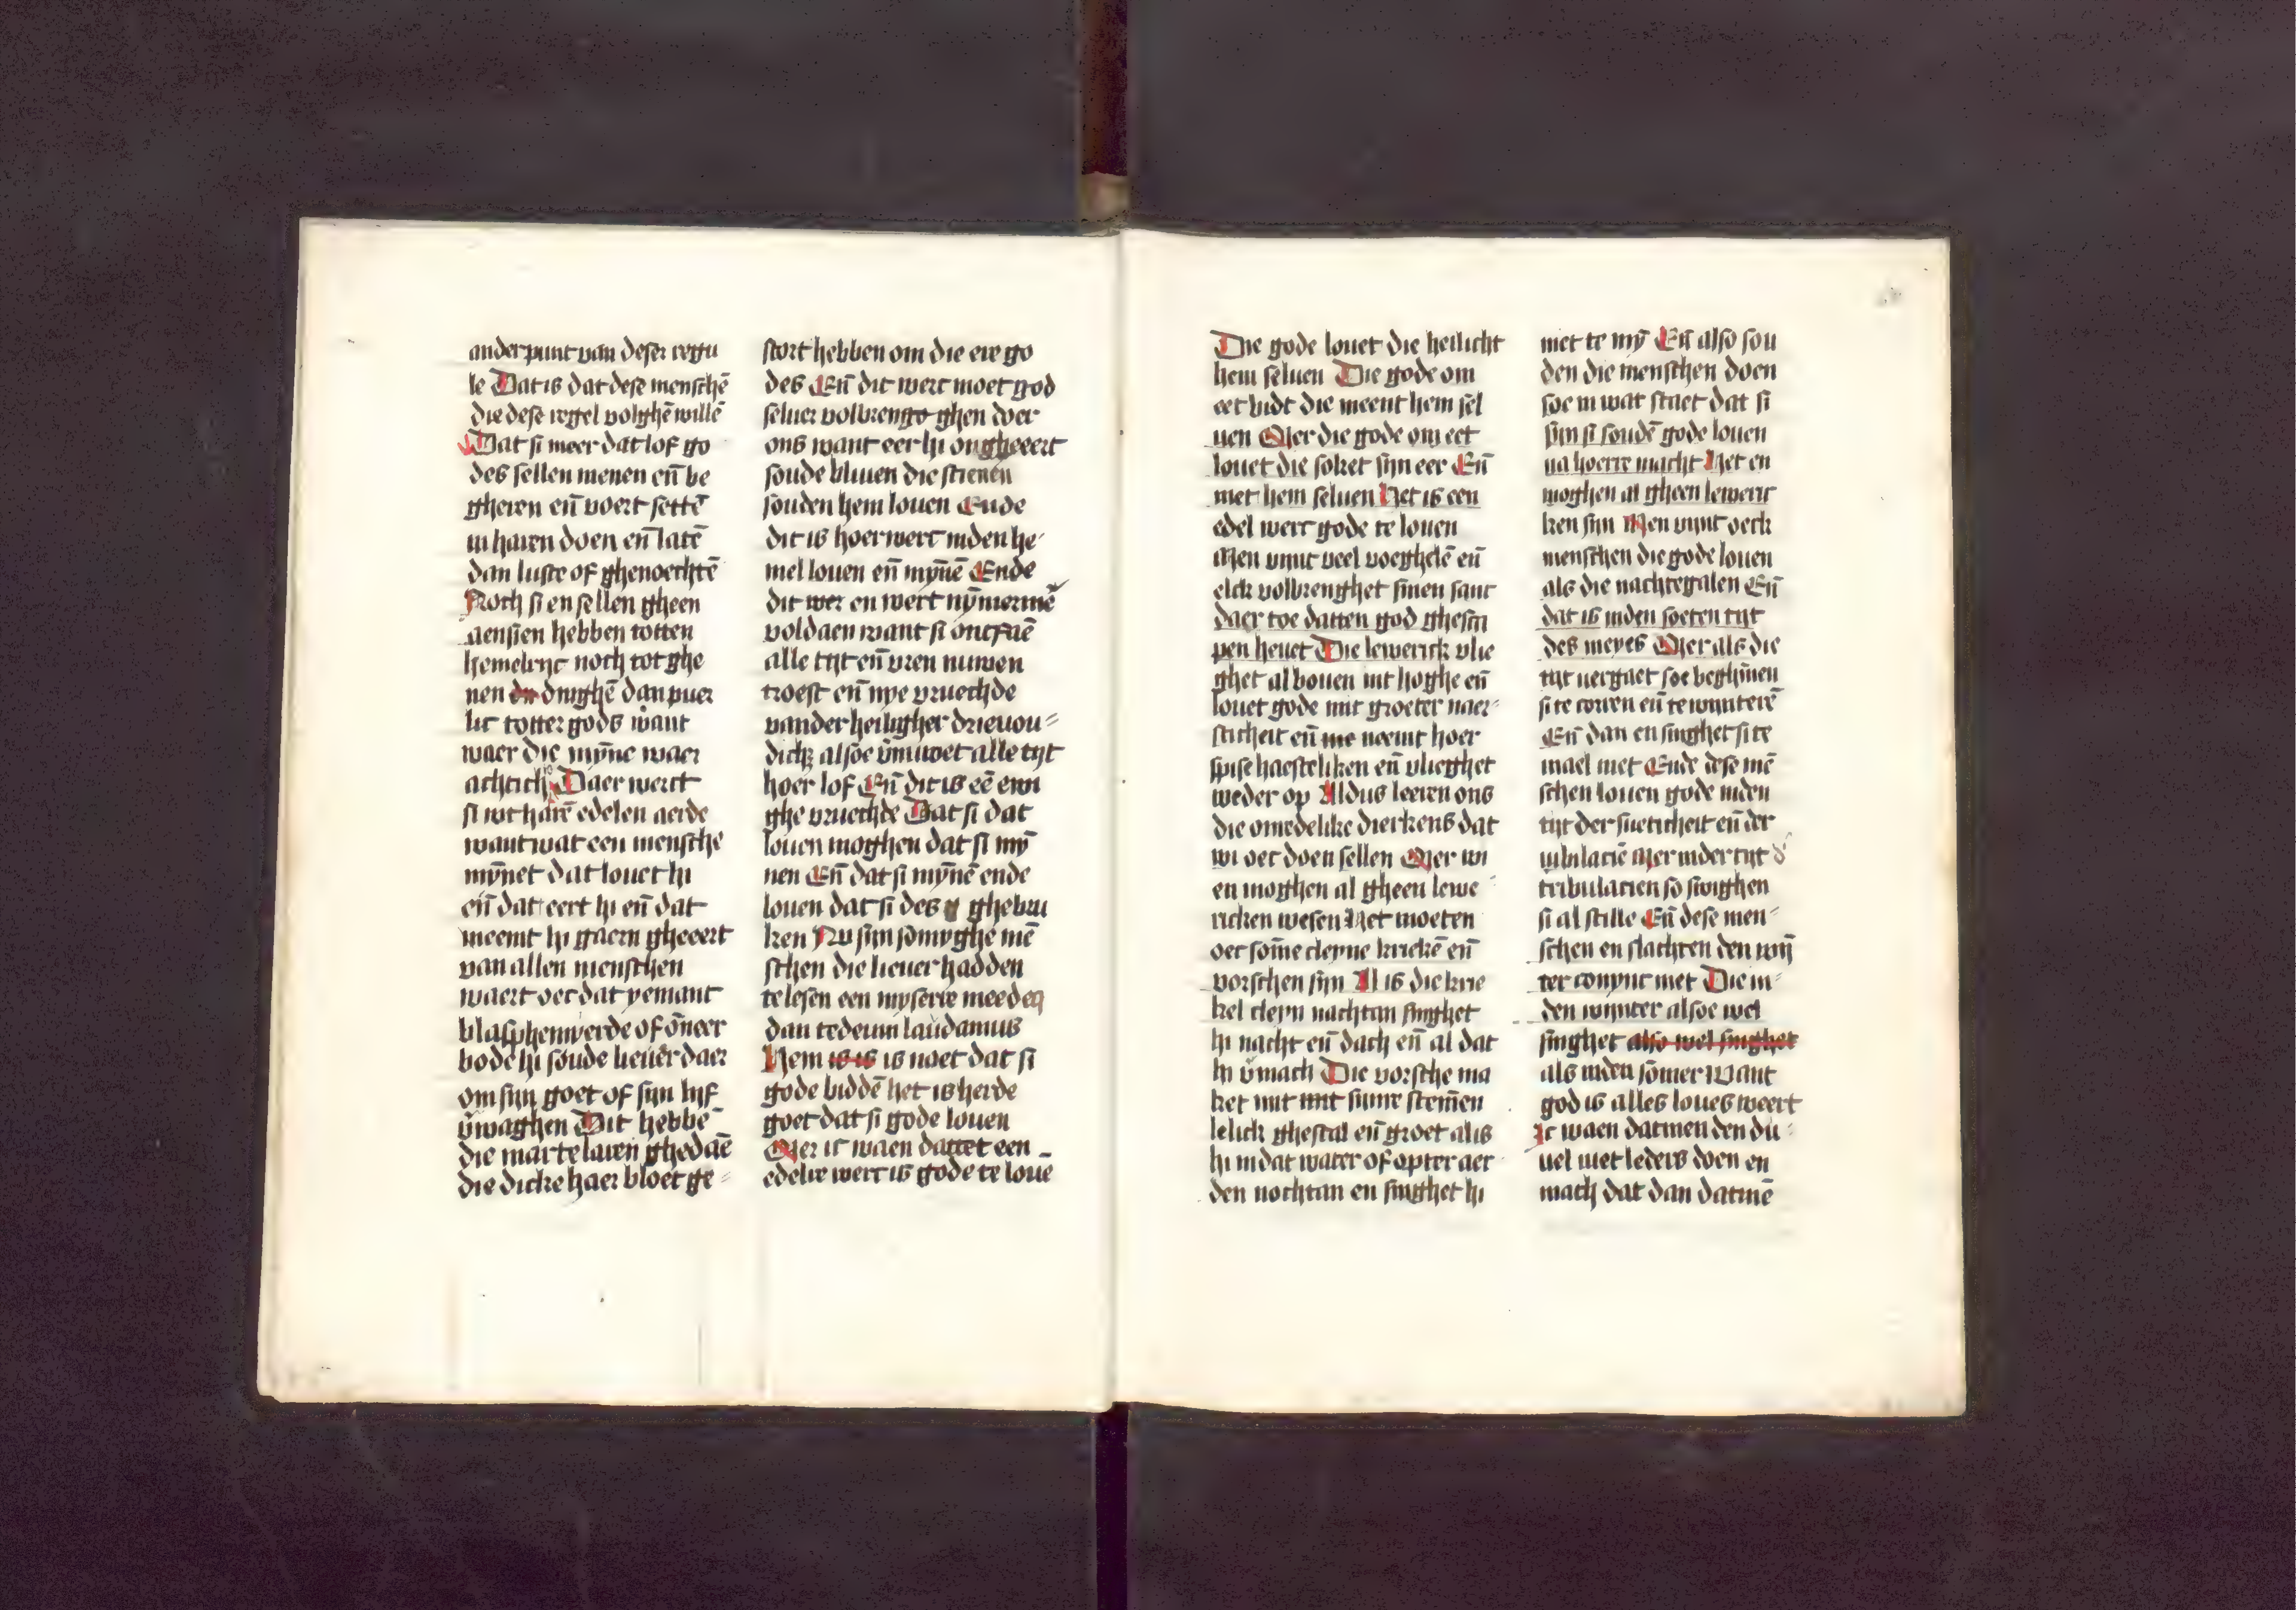 ander punt van deser regu
le Dat is dat dese menschē
die dese regel volghē willē
Dat si meer dat lof go
des sellen menen eñ be
gheren eñ voert settē
in haren doen eñ latē
dan luste of ghenoechtē
Noch si en sellen gheen
aensien hebben totten
hemelryc noch tot ghe
nen die dinghē dan puer
lic totter gods want
waer die myn̄e waer
achtich Daer werct
si wt harē edelen aerde
want wat een mensche
myn̄et dat louet hi
eñ dat eert hi eñ dat
meemt hi gaern gheeert
van allen menschen
waert oec dat yemant
blasphemierde of ōneer
bode hi soude lieuer daer
om sijn goet of sijn lijf
v̄waghen Dit hebbē
die martelaren ghedaē
die dicke haer bloet ge⸗
stort hebben om die ere go
des Eñ dit werc moet god
seluer volbrengo ghen doer
ons want eer hi ongheeert
soude bliuen die stienen
souden hem louen Ende
dit is hoer werc inden he⸗
mel louen eñ myn̄ē Ende
dit wer en wert nȳmermē
voldaen want si ontfaē
alle tijt eñ vren nuwen
troest eñ nye vruechde
vander heiligher drieuou⸗
dich alsoe v̄niwet alle tijt
hoer lof Eñ dit is eē ewi
ghe vruechde Dat si dat
louen moghen dat si mȳ
nen Eñ dat si mȳnē ende
louen dat si des ghebru
ken Nu sijn sōmyghe mē
schen die lieuer hadden
te lesen een myserie meedeɳ
dan tedeum laudamus
Hem is is is noet dat si
gode biddē het is herde
goet dat si gode louen
Mer ic waen dattet een
edelre werc is gode te louē
Die gode louet die heilicht
hem seluen Die gode om
eet bidt die meent hem sel
uen Mer die gode om eet
louet die soket sijn eer Eñ
niet hem seluen Het is een
edel werc gode te louen
Men vint veel voeghelē eñ
elck volbrenghet sinen sanc
daer toe datten god ghesca
pen heuet Die lewerick vlie
ghet al bouen int hoghe eñ
louet gode mit groeter naer⸗
sticheit eñ me neemt hoer
spise haesteliken eñ vlieghet
weder op Aldus leeren ons
die onredelike dierkens dat
wi oec doen sellen Mer wi
en moghen al gheen lewe
ricken wesen Het moeten
oec som̄e cleyne krickē eñ
vorschen sijn Al is die krie
kel cleyn nachtan singhet
hi nacht eñ dach eñ al dat
hi v̄mach Die vorsche ma
ket mit mit sinre stem̄en
lelick ghestal eñ groet alis
hi in dat water of opter aer
den nochtan en singhet hi
niet te mȳ Eñ also sou
den die menschen doen
soe in wat staet dat si
sijn si soudē gode louen
na hoerre macht Het en
moghen al gheen leweric
ken sijn Men vijnt oeck
menschen die gode louen
als die nachtegalen Eñ
dat is inden soeten tijt
des meyes Mer als die
tijt vergaet soe beghīnen
si te corren eñ te wynterē
Eñ dan en singhet si te
mael niet Ende dese mē
schen louen gode inden
tijt der sueticheit eñ der
iubilaciē Mer in der tijt d̕
tribulacien so swighen
si al stille Eñ dese men⸗
schen en slachten den wȳ
ter conync niet Die in⸗
den wynter alsoe wel
singhet also wel singhet
als inden sōmer Want
god is alles loues weert
Ic waen datmen den du⸗
uel niet leders doen en
mach dat dan datmē